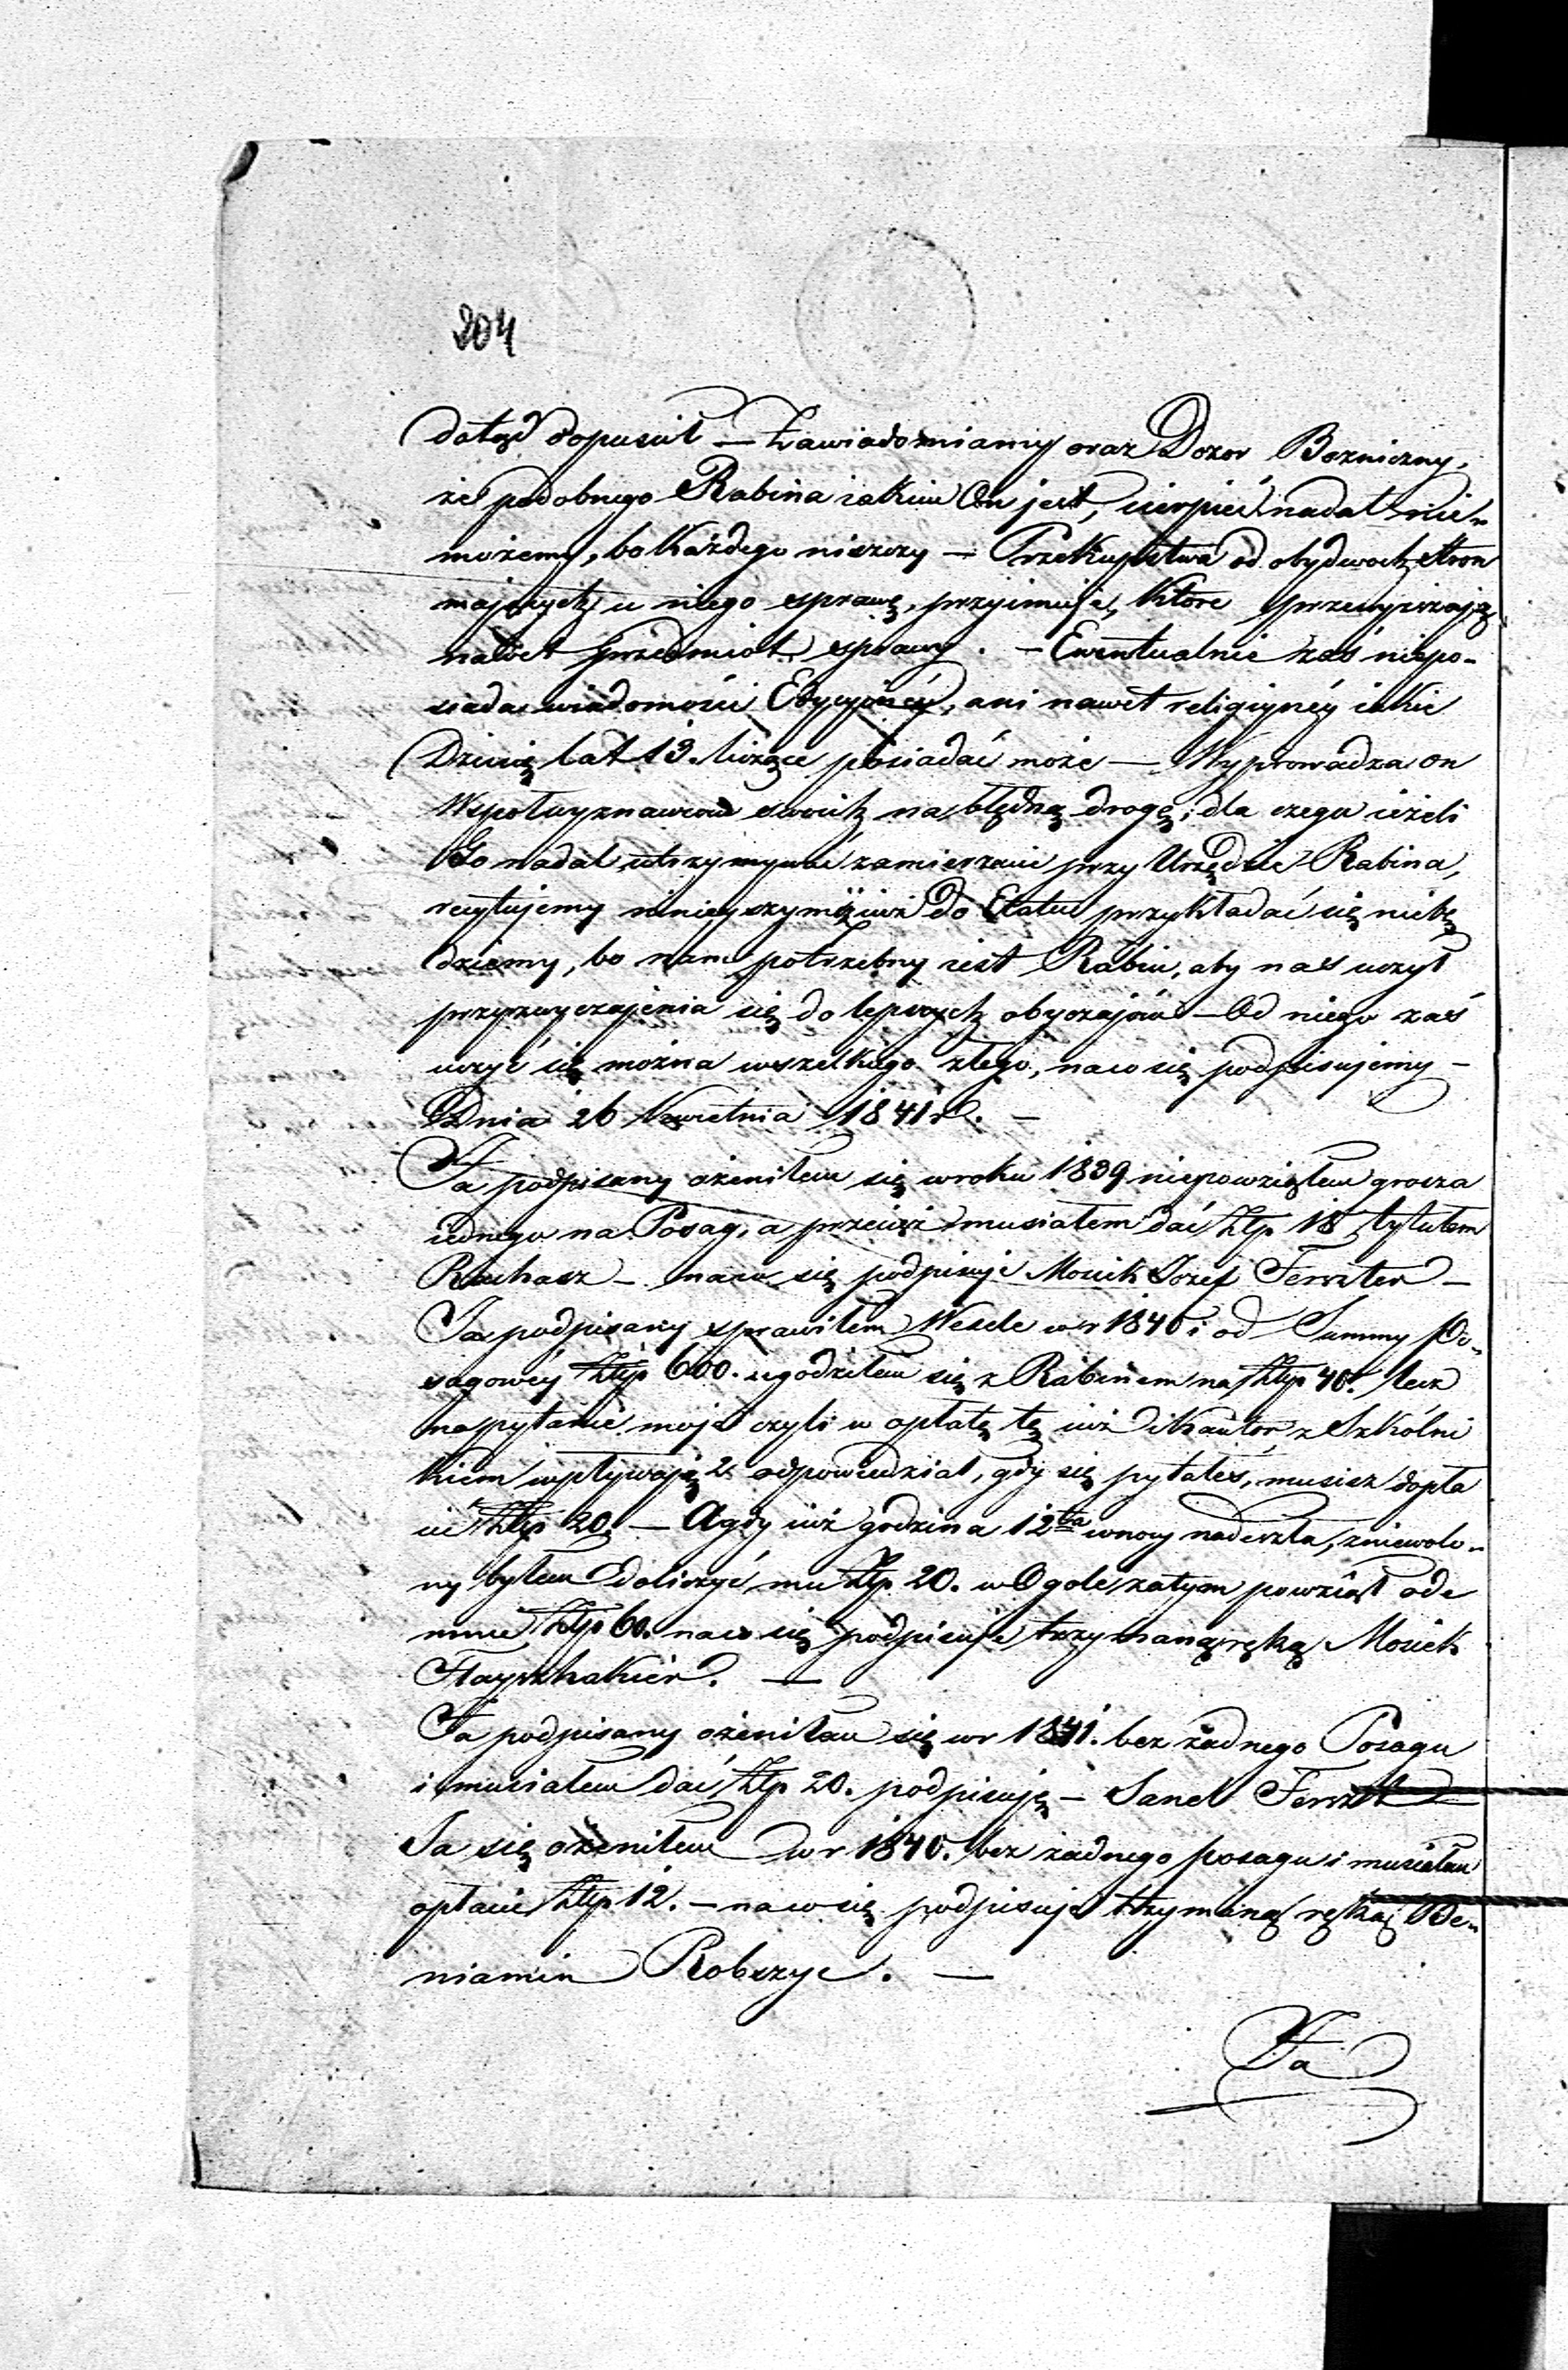 204
dotąd dopuścił — Zawiadomiamy oraz Dozor Bozniczny,
że podobnego Rabina iakim On jest, cierpieć nadal nie-
możemy, bo każdego niszczy — Przekupstwa od obydwoch stron
mających u niego sprawę, przyimuje, ktore przewyższają
nawet przedmiot sprawy. — Ewentualnie zaś niepo-
siada wiadomości, ani nawet religiynéy iakie
Dziecię lat 13. liczące posiadać może — Wyprowadza on
Wspołwyznawcow swoich na błędną drogę; dla czego ieżeli
Go nadal utrzymywać zamierzacie przy Urzędzie Rabina,
recytujemy ninieyszym iż iuż do Etatu przykładać się niebę
dziemy, bo nam potrzebny iest Rabin, aby nas uczył
przyzwyczajenia się do lepszych obyczajów — Od niego zaś
uczyć się można wszelkiego złego, na co się podpisujemy —
Dnia 26 Kwietnia 1841 r. —
Ja podpisany ożeniłem się w roku 1839 niepowziąłem grosza
iednego na Posag, a przecież musiałem dać Złp 18 tytułem
Ruchasz — na co się podpisuje Mosiek Jozef Ferszter —
Ja podpisany sprawiłem Wesele w r 1840 i od Summy po-
sagowéy Złp 600. ugodziłem się z Rabinem na Złp 40. lecz
na pytanie moje czyli w opłatę tę iuż i Kantor z Szkólni
kiem wpływają? odpowiedział, gdy się pytałeś, musisz dopła
cić Złp 20. — A gdy iuż godzina 12ta w nocy nadeszła, zniewolo-
ny byłem doliczyć mu Złp. 20. w Ogole zatym powziął ode
mnie Złp 60. na co się podpisuje trzymaną ręką Mosiek
Flayszhakier. —
Ja podpisany ożeniłem się w r 1841. bez żadnego Posagu
i musiałem dać Złp 20. podpisuję — Sanel
Ja się ożeniłem w r 1840. bez żadnego posagu i musiałem
opłacić Złp 12. — na co się podpisuje trzymaną ręką Be-
niamin Robszyc. —
Ja